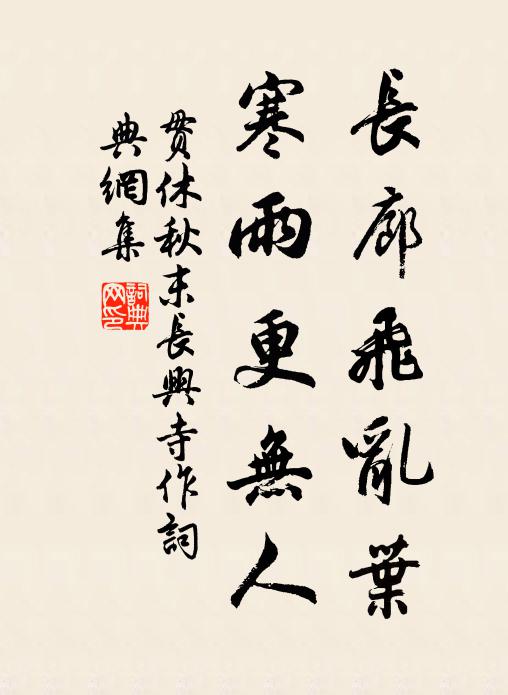 長廊飛亂葉
寒雨更無人
貫休秋末長興寺作詞
典網集
詞典
网印